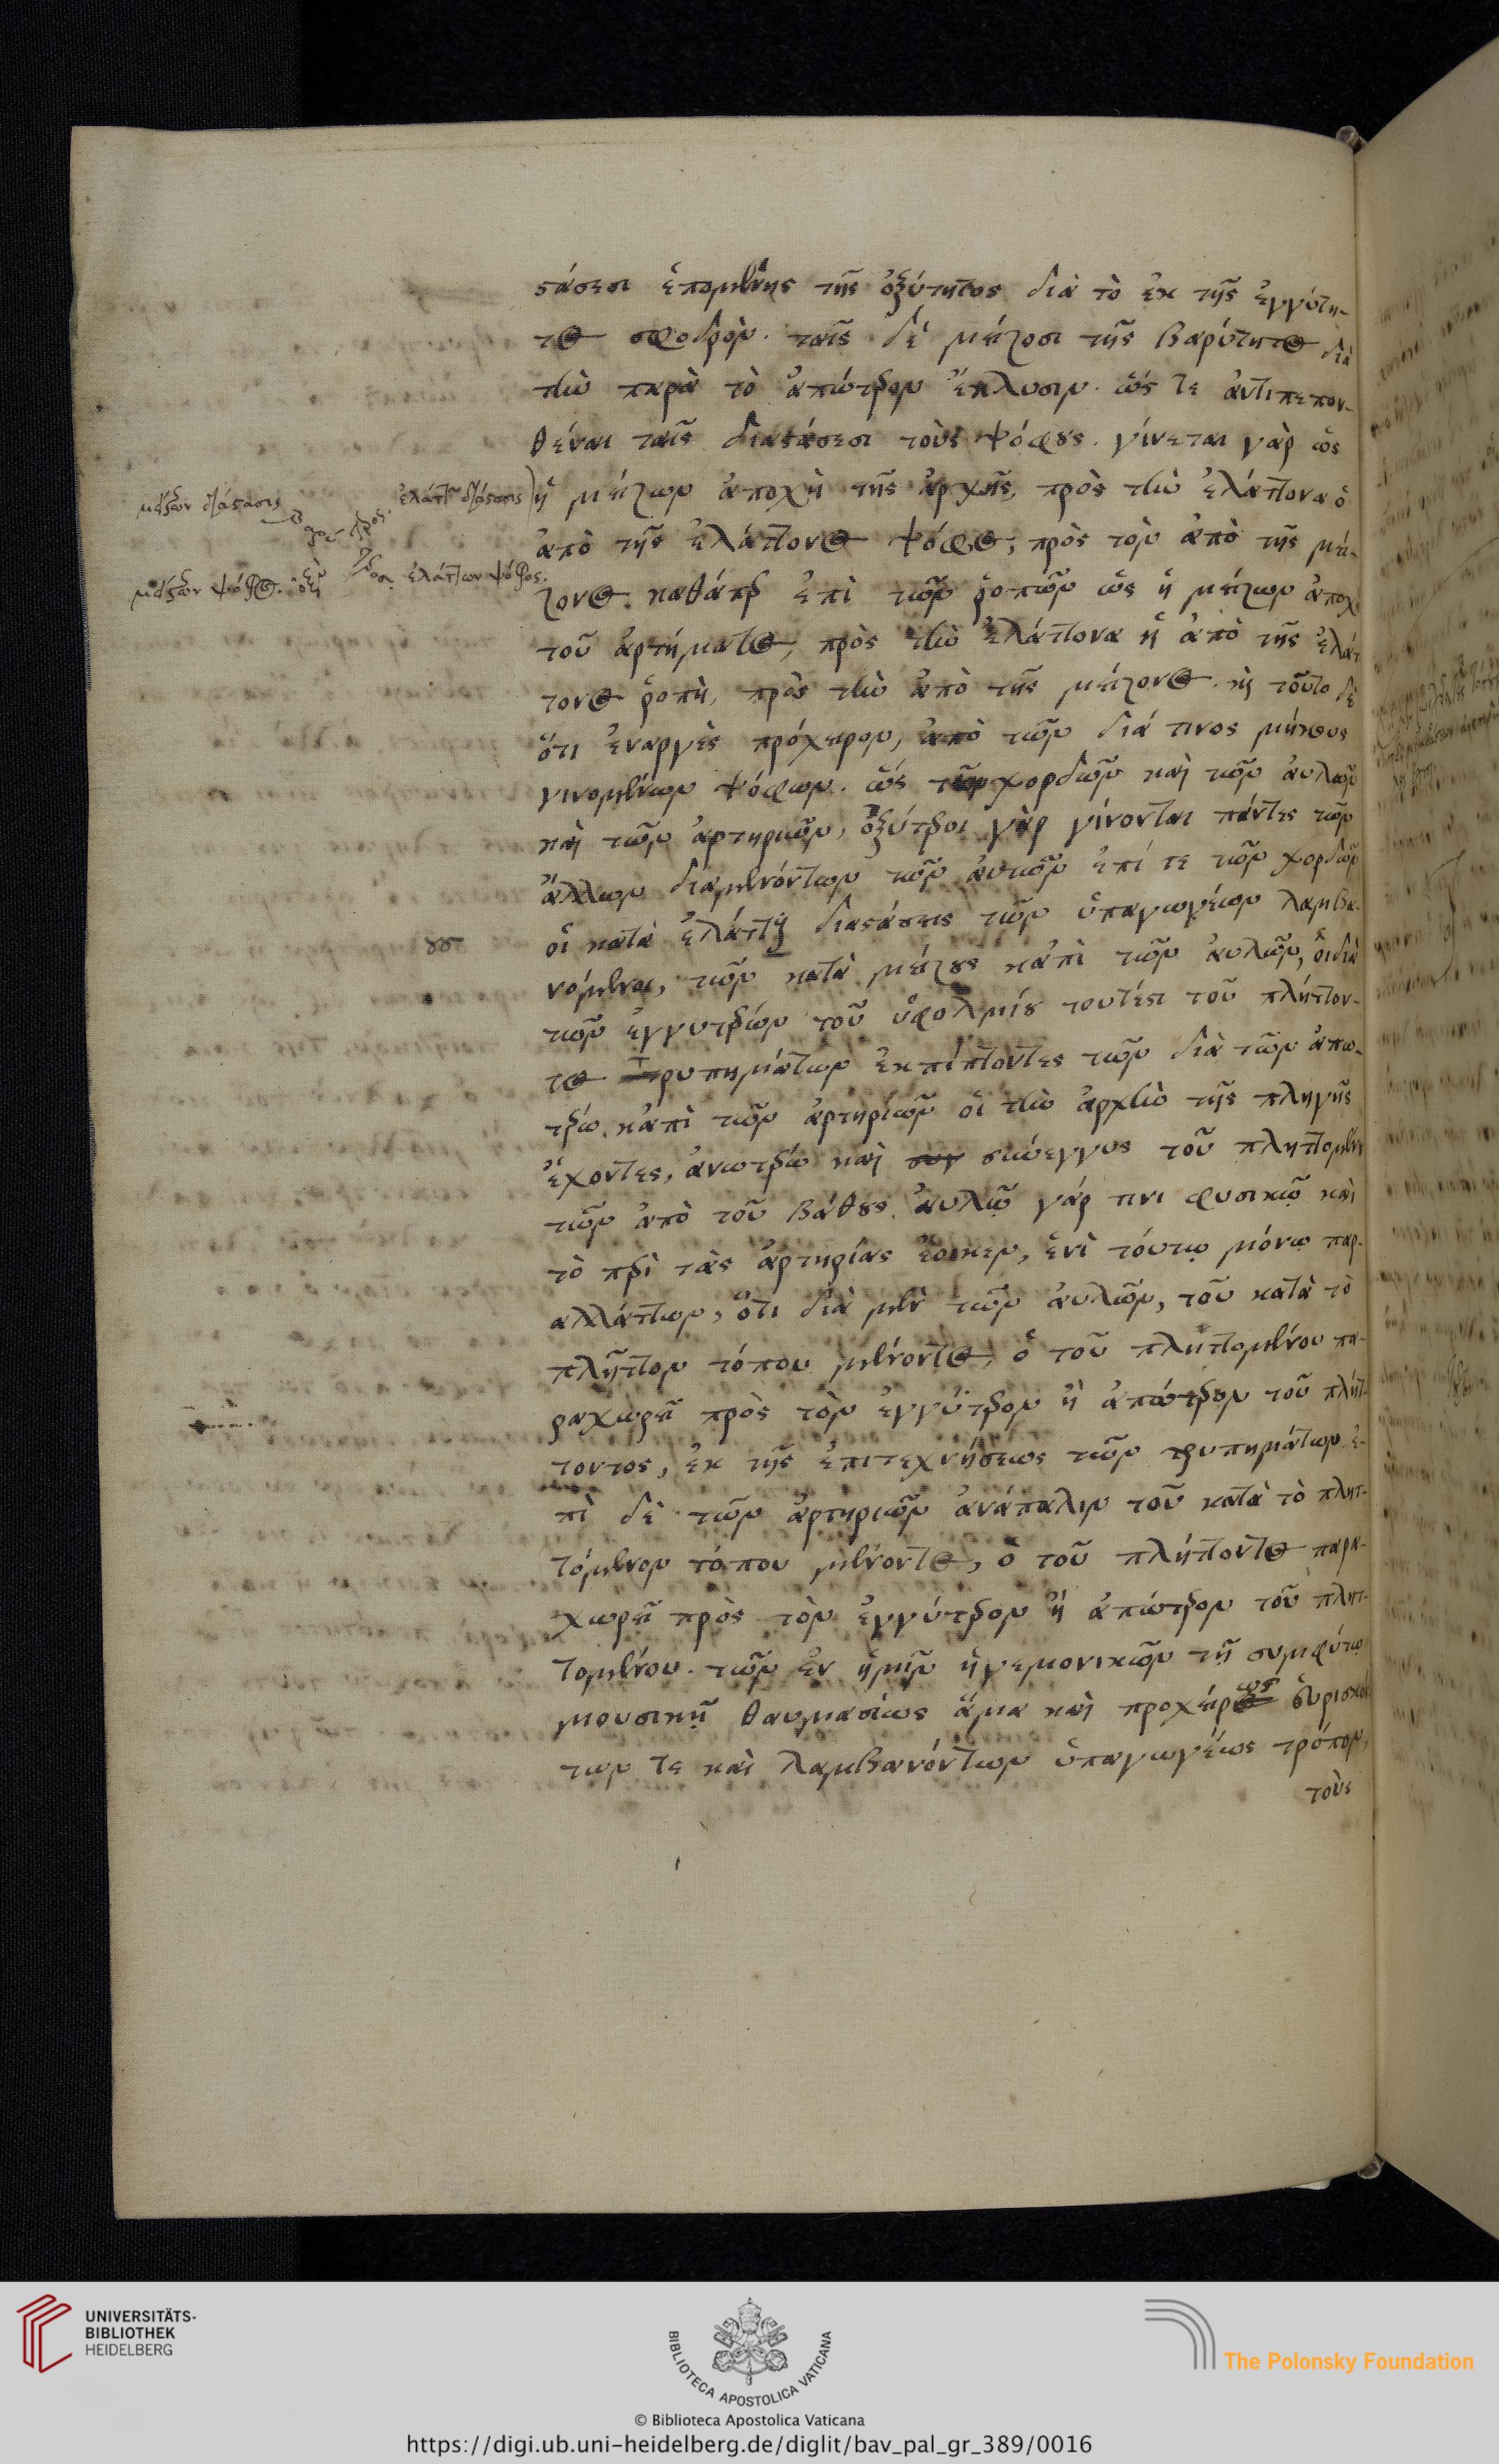 στάσεσι ἑπομένης τῆς ὀξύτητος διὰ τὸ ἐκ τῆς ἐγγύτη-
τος σφοδρὸν. ταῖς δὲ μείζοσι τῆς βαρύτητος διὰ
τὴν παρὰ τὸ ἀπώτερον ἔκλυσιν. ὥς τε ἀντιπεπον-
θέναι ταῖς διαστάσεσι τοὺς ψόφους. γίνεται γὰρ ὡς
ἡ μείζων ἀποχὴ τῆς ἀρχῆς, πρὸς τὴν ἐλάττονα ὁ
ἀπὸ τῆς ἐλάττονος ψόφος, πρὸς τὸν ἀπὸ τῆς μεί-
ζονος. καθάπερ ἐπὶ τῶν ῥοπῶν ὡς ἡ μείζων ἀποχὴ
τοῦ ἀρτήματος, πρὸς τὴν ἐλάττονα ἡ ἀπὸ τῆς ἐλάτ
τονος ῥοπὴ, πρὸς τὴν ἀπὸ τῆς μείζονος. καὶ τοῦτο δὲ
ὅτι ἐναργὲς πρόχειρον, ἀπὸ τῶν διά τινος μήκους
γινομένων ψόφων. ὥς τῶν χορδῶν καὶ τῶν αὐλῶν
καὶ τῶν ἀρτηριῶν, ὀξύτεροι γὰρ γίνονται πάντες τῶν
ἄλλων διαμενόντων τῶν αὐτῶν ἐπί τε τῶν χορδῶν
οἱ κατὰ ἐλάττους διαστάσεις τῶν ὑπαγωγέων λαμβα-
νόμενοι, τῶν κατὰ μείζους κἀπὶ τῶν αὐλῶν, οἱ διὰ
τῶν ἐγγυτέρων τοῦ ὑφολμίου τουτέστι τοῦ πλήττον-
τος τρυπημάτων ἐκπίπτοντες τῶν διὰ τῶν ἀπω-
τέρω. κἀπὶ τῶν ἀρτηριῶν οἱ τὴν ἀρχὴν τῆς πληγῆς
ἔχοντες, ἀνωτέρω καὶ συν συνεγγυς τοῦ πληττομένου
τῶν ἀπὸ τοῦ βάθους. αὐλῷ γάρ τινι φυσικῷ καὶ
τὸ περὶ τὰς ἀρτηρίας ἔοικεν, ἑνὶ τούτῳ μόνῳ παρ-
αλλάττων, ὅτι διὰ μὲν τῶν αὐλῶν, τοῦ κατὰ τὸ
πλῆττον τόπου μένοντος, ὁ τοῦ πληττομένου πα-
ραχωρεῖ πρὸς τὸν ἐγγύτερον ἢ ἀπώτερον τοῦ πλήτ-
τοντος, ἐκ τῆς ἐπιτεχνήσεως τῶν τρυπημάτων ἐ-
πὶ δὲ τῶν ἀρτηριῶν ἀνάπαλιν τοῦ κατὰ τὸ πλητ-
τόμενον τόπου μένοντος, ὁ τοῦ πλήττοντος παρα-
χωρεῖ πρὸς τὸν ἐγγύτερον ἢ ἀπώτερον τοῦ πλητ-
τομένου. τῶν ἐν ἡμῖν ἡγεμονικῶν τῇ συμφύτῳ
μουσικῇ θαυμασίως ἅμα καὶ προχείρως εὑρισκόν
των τε καὶ λαμβανόντων ὑπαγωγέως τρόπον,
τοὺς
μείζων διάστασις
ἐλάττων διάστασις
μείζων ψόφος. ὀξὺ
ἐλάττων ψόφος.
ους
UNIVERSITÄTS-
BIBLIOTHEK
HEIDELBERG
BIBLIOTECA APOSTOLICA VATICANA
© Biblioteca Apostolica Vaticana
The Polonsky Foundation
https://digi.ub.uni-heidelberg.de/diglit/bav_pal_gr_389/0016